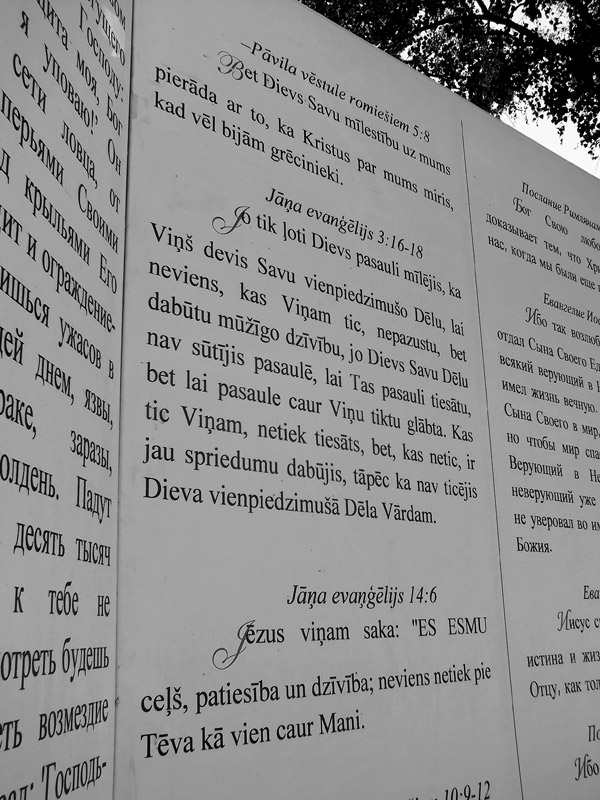 Господу:
щита моя, Бог
я уповаю!" Он
сети ловца, от
перьями Своими
крыльями Его
и ограждение-
ужасов в
днем, язвы,
заразы,
Падут
десять тысяч
к тебе не
будешь
возмездие
"Господь-
–Pāvila vēstule romiešiem 5:8
Bet Dievs Savu mīlestību uz mums
pierāda ar to, ka Kristus par mums miris,
kad vēl bijām grēcinieki.
Jāņa evaņģēlijs 3:16-18
Jo tik ļoti Dievs pasauli mīlējis, ka
Viņš devis Savu vienpiedzimušo Dēlu, lai
neviens, kas Viņam tic, nepazustu, bet
dabūtu mūžīgo dzīvību, jo Dievs Savu Dēlu
nav sūtījis pasaulē, lai Tas pasauli tiesātu,
bet lai pasaule caur Viņu tiktu glābta. Kas
tic Viņam, netiek tiesāts, bet, kas netic, ir
jau spriedumu dabūjis, tāpēc ka nav ticējis
Dieva vienpiedzimušā Dēla Vārdam.
Jāņa evaņģēlijs 14:6
Jēzus viņam saka: "ES ESMU
ceļš, patiesība un dzīvība; neviens netiek pie
Tēva kā vien caur Mani.
10:9-12
Послание Римлянам
Бог Свою
доказывает тем, что
нас, когда мы были еще
Евангелие
Ибо так
отдал Сына Своего
всякий верующий в
имел жизнь вечную.
Сына Своего в мир,
но чтобы мир
Верующий в
неверующий уже
не уверовал во
Божия.
Иисус
истина и
Отцу, как
Ибо